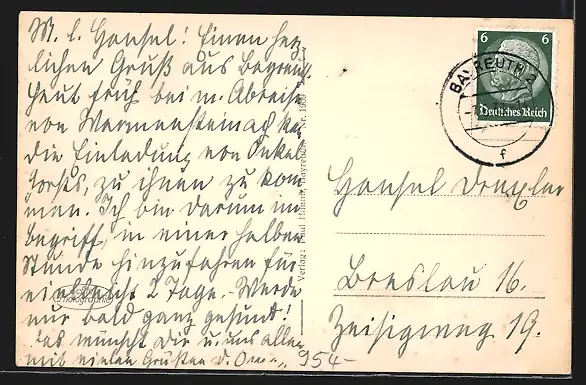 M. l. Hansel! Einen herz-
lichen Gruß aus Bayreuth.
Heut früh bei m. Abreise
von Warmensteinach kam
die Einladung von Onkel
zu ihnen zu kom-
men. Ich bin darum im
Begriff, in einer halben
Stunde hinzufahren für
2 Tage. Werde
nur bald ganz gesund!
Das wünscht Dir u. uns allen
mit vielen Grüßen d. Oma.
954-
Verlag: Bayreuth
photographie
6 6
Deutsches Reich
BAYREUTH 2
f
Hansel Drexler
Breslau 16.
Zeisigweg 19.